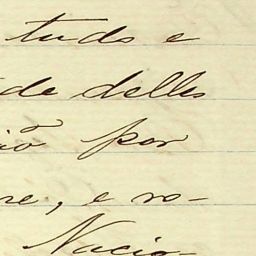 tudo e
de delles
por
re, e ro-
Nacio-